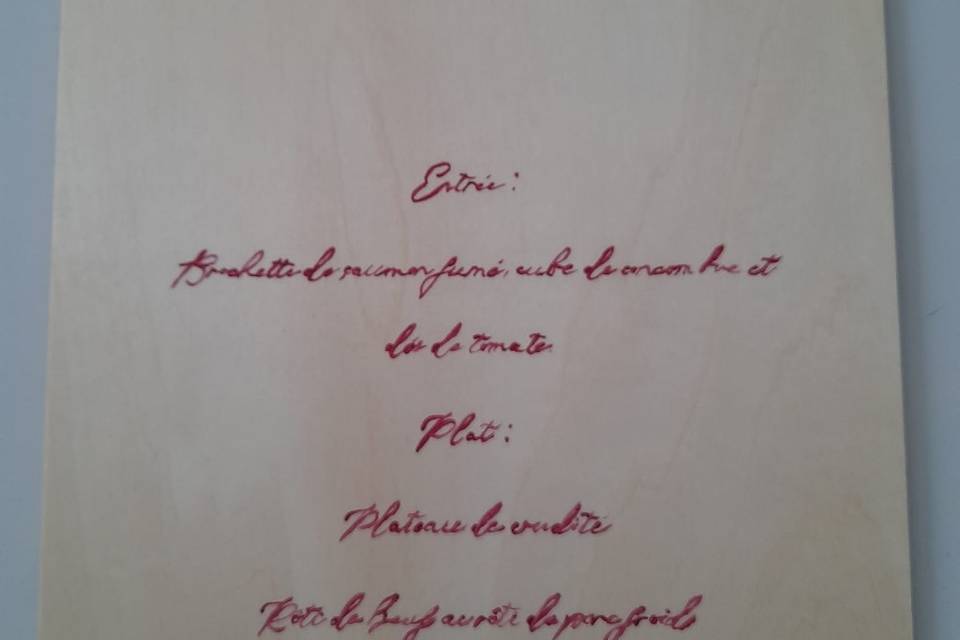 Entrée :
Brochette de saumon fumé, cube de concombre et
dés de tomate.
Plat :
Plateau de crudité
Rôti de Bœuf au rôti de porc froids